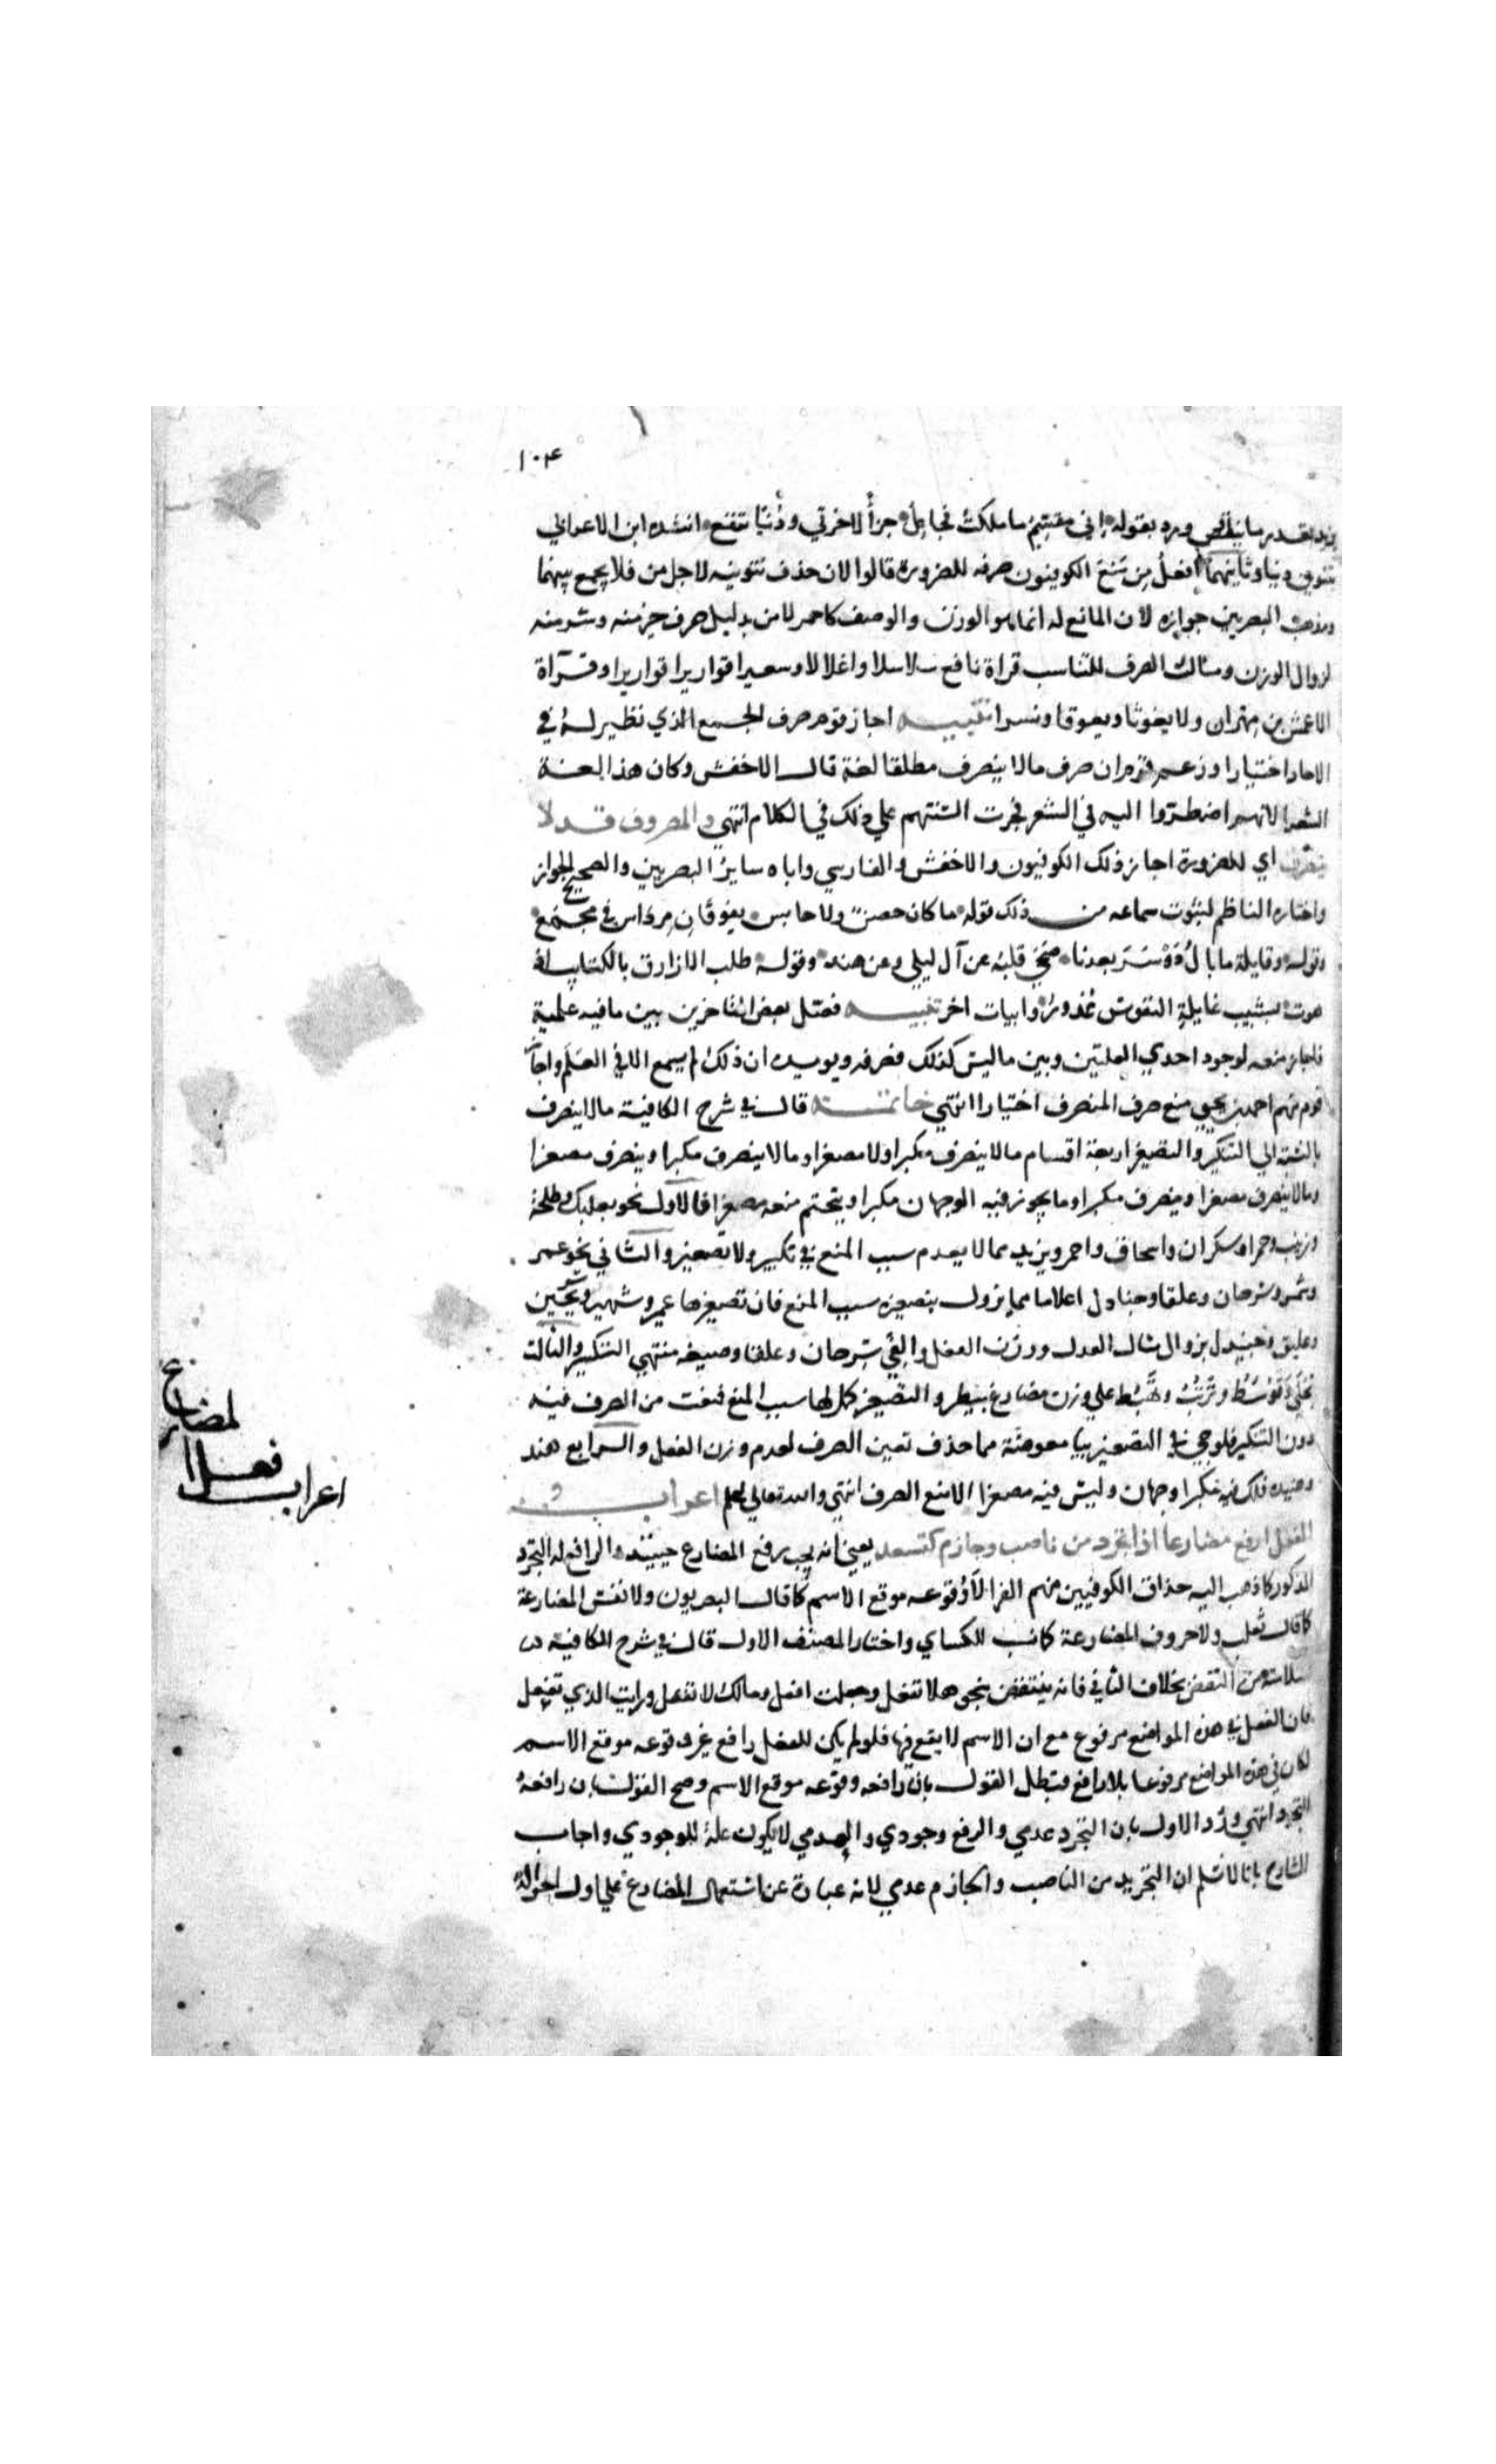 ١٠٤
يزيد بقدر ما ينقص ورد بقوله اني مقسم ما ملكت فجاعل جزأ لاخرتي ودنيا تنفع انشده ابن الاعرابي
بتنوين دنيا وثانيهما افعل من تنع الكوفيون صرفه للضرورة قالوا لان حذف تنوينه لاجل من فلا يجمع بينهما
ومذهب البصريين جوازه لان المانع له انما هو الوزن والوصف كاحمر لا من بدليل صرف خير منه وشر منه
لزوال الوزن ومثال الصرف للتناسب قراة نافع سلاسلا واغلالا وسعيرا قواريرا قواريرا وقرآة
الاعمش بن مهران ولا يغوثا ويعوقا ونسرا تنبيه اجاز قوم صرف الجمع الذي نظير له في
الاحاد اختيارا وزعم قوم ان صرف مالا ينصرف مطلقا لغة قال الاخفش وكان هذا لغة
الشعرا لانهم اضطروا اليه في الشعر فجرت السنتهم علي ذلك في الكلام انتهي والمصروف قد لا
ينصرف اي للضرورة اجاز ذلك الكوفيون والاخفش والفارسي واباه ساير البصريين والصحيح الجواز
واختاره الناظم لثبوت سماعه من ذلك قوله ما كان حصن ولا حابس يفوقان مرداس في مجمع
وقوله وقايلة ما بال دوسر بعدنا صحي قلبه عن آل ليلي وعن هند وقوله طلب الازارق بالكتايب اذ
هوت بشبيب غايلة النفوس غدور وابيات اخر تنبيه فصل بعض المتاخرين بين مافيه علمية
فاجاز منعه لوجود احدي العلتين وبين ماليس كذلك فصرفه ويويده ان ذلك لم يسمع الا في العلم واجاز
قوم منهم احمد بن يحيي منع صرف المنصرف اختيارا انتهي خاتمة قال في شرح الكافية مالا ينصرف
بالنسبة الي التكبير والتصغير اربعة اقسام مالا ينصرف مكبرا ولا مصغرا ومالا ينصرف مكبرا وينصرف مصغرا
ومالا ينصرف مصغرا وينصرف مكبرا وما يجوز فيه الوجهان مكبرا ويتحتم منعه مصغرا فالاول نحو بعلبك وطلحة
وزينب وحمرا وسكران واسحاق واحمر ويزيد مما لا يعدم سبب المنع في تكبير ولا تصغير والثاني نحو عمر
وشمر وسرحان وعلقا وجنادل اعلاما مما يزول بتصغيره سبب المنع فان تصغيرها عمير وشمير وسريحين
وعليق وجنيدل بزوال مثال العدل ووزن الفعل والفي سرحان وعلقا وصيغة منتهي التكسير والثالث
تحلي وتوسط وترتب وتهبط علي وزن مضارع بيطر والتصغير كمل لها سبب المنع فمنعت من الصرف فيه
دون التكبير فلو جي في التصغير بيا معوضة مما حذف تعين الصرف لعدم وزن الفعل والرابع هند
وهنيدة فلك فيه مكبرا وجهان وليس فيه مصغرا الا منع الصرف انتهي والله تعالي اعلم اعراب
الفعل ارفع مضارعا اذا يجرد من ناصب وجازم كتسعد يعني انه يجب رفع المضارع حينئذ والرافع له التجرد
المذكور كما ذهب اليه حذاق الكوفيين منهم الفرا لا وقوعه موقع الاسم كما قال البصريون ولا نفس المضارعة
كما قال ثعلب ولا حروف المضارعة كما نسب للكساي واختار المصنف الاول قال في شرح الكافية
لسلامته من النقض بخلاف الثاني فانه ينتقض بنحو هلا تفعل وجعلت افعل ومالك لا تفعل ورايت الذي تفعل
فان الفعل في هذه المواضع مرفوع مع ان الاسم لا يقع فيها فلو لم يكن للفعل رافع غير وقوعه موقع الاسم
لكان في هذه المواضع مرفوعا بلا رافع فبطل القول بان رافعه وقوعه موقع الاسم وصح القول بان رافعه
التجرد انتهي ورد الاول بان التجرد عدمي والرفع وجودي والعدمي لا يكون علة للوجودي واجاب
الشارح بانا لا نسلم ان التجريد من الناصب والجازم عدمي لانه عبارة عن استعمال المضارع علي اول احواله
اعراب
فعل ا
لمضارع